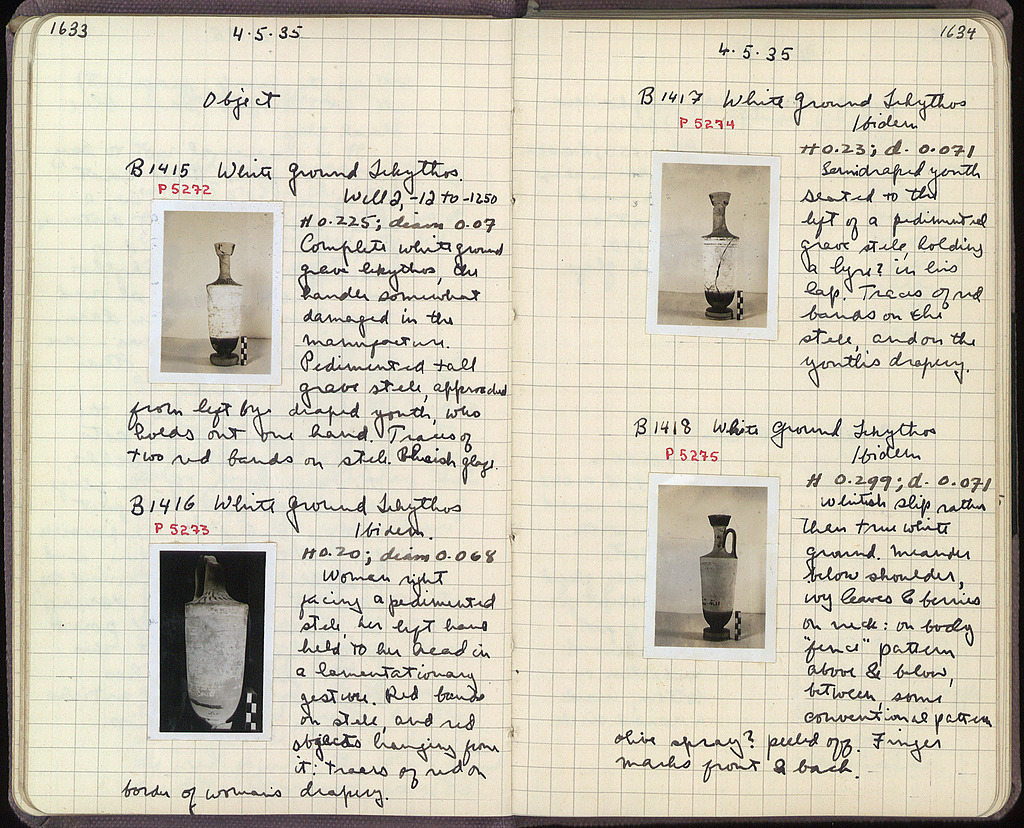 1633
4·5·35
Object
B1415 White ground Lekythos.
P 5272
Well 2, -12 to -1250
H 0.225; diam 0.07
Complete white ground
grave lekythos, the
handle somewhat
damaged in the
manufacture.
Pedimented tall
grave stele, approached
from left by a draped youth, who
holds out one hand. Traces of
two red bands on stele. Bluish glaze.
B1416 White ground Lekythos
P 5273
Ibidem.
H 0.20; diam 0.068
Woman right
facing a pedimented
stele, her left hand
held to her head in
a lamentationary
gesture. Red bands
on stele, and red
objects hanging from
it: traces of red on
border of woman's drapery.
1634
4·5·35
B1417 White ground Lekythos
P 5274
Ibidem
H 0.23; d. 0.071
Semidraped youth
seated to the
left of a pedimented
grave stele, holding
a lyre? in his
lap. Traces of red
bands on the
stele, and on the
youth's drapery.
B1418 White Ground Lekythos
P 5275
Ibidem
H 0.299; d. 0.071
Whitish slip rather
then true white
ground. Meander
below shoulder,
ivy leaves & berries
on neck: on body
"fence" pattern
above & below,
between, some
conventional pattern
olive spray? peeled off. Finger
marks front & back.